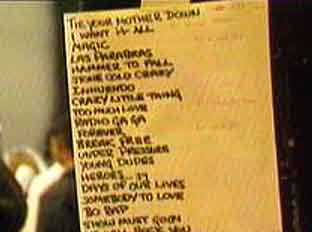 TIE YOUR MOTHER DOWN
I WANT IT ALL
MAGIC
LAS PARABRAS
HAMMER TO FALL
STONE COLD CRAZY
INNUENDO
CRAZY LITTLE THING
TOO MUCH LOVE
RADIO GA GA
FOREVER
BREAK FREE
UNDER PRESSURE
YOUNG DUDES
HEROES...
DAYS OF OUR LIVES
SOMEBODY TO LOVE
BO RAP
SHOW MUST GO ON
ROCK YOU